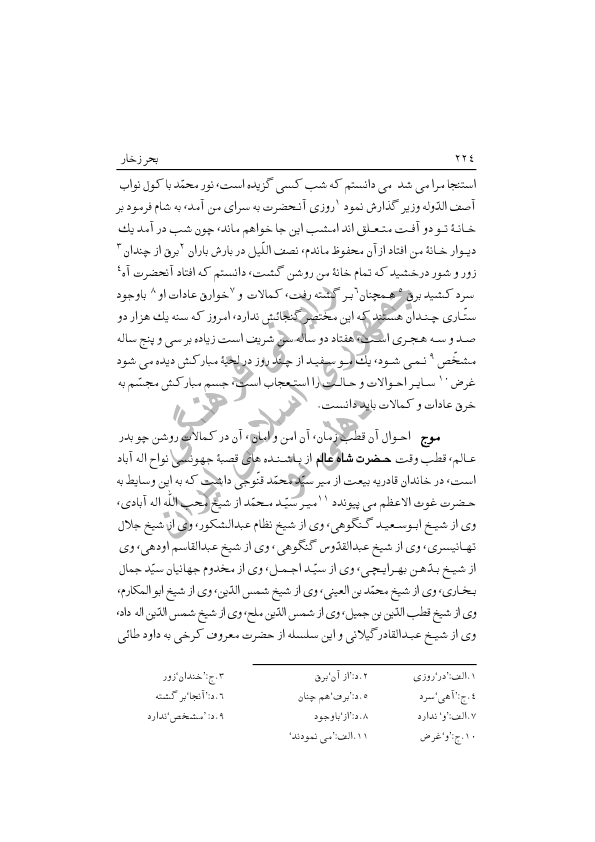 ۲۲۴ بحر زخار
استنجا مرا می شد می دانستم که شب کسی گزیده است، نور محمّد با کول نواب
آصف الدّوله وزیر گذارش نمود ۱روزی آنحضرت به سرای من آمد، به شام فرمود بر
خانۀ تو دو آفت متعلق اند امشب این جا خواهم ماند، چون شب در آمد یك
دیوار خانۀ من افتاد از آن محفوظ ماندم، نصف اللّیل در بارش باران ۲برق از چندان۳
زور و شور درخشید که تمام خانۀ من روشن گشت، دانستم که افتاد آنحضرت آه۴
سرد کشید برق۵ همچنان۶ بر گشته رفت، کمالات و۷خوارق عادات او۸ باوجود
ستّاری چندان هستند که این مختصر گنجائش ندارد، امروز که سنه یك هزار دو
صد و سه هجری است، هفتاد دو ساله سن شریف است زیاده بر سی و پنج ساله
مشخّص ۹ نمی شود، یك مو سفید از چند روز در لحیۀ مبارکش دیده می شود
غرض۱۰ سایر احوالات و حالت را استعجاب است، جسم مبارکش مجسّم به
خرق عادات و کمالات باید دانست.
موج احوال آن قطب زمان، آن امن و امان، آن در کمالات روشن چو بدر
عالم، قطب وقت حضرت شاه عالم از باشنده های قصبۀ جهونسی نواح اله آباد
است، در خاندان قادریه بیعت از میر سیّد محمّد قنّوجی داشت که به این وسایط به
حضرت غوث الاعظم می پیوندد ۱۱میر سیّد محمّد از شیخ محب اللّه اله آبادی،
وی از شیخ ابوسعید گنگوهی، وی از شیخ نظام عبدالشکور، وی از شیخ جلال
تهانیسری، وی از شیخ عبدالقدّوس گنگوهی، وی از شیخ عبدالقاسم اودهی، وی
از شیخ بدّهن بهرایچی، وی از سیّد اجمل، وی از مخدوم جهانیان سیّد جمال
بخاری، وی از شیخ محمّد بن العینی، وی از شیخ شمس الدّین، وی از شیخ ابوالمکارم،
وی از شیخ قطب الدّین بن جمیل، وی از شیخ شمس الدّین ملح، وی از شیخ شمس الدّین اله داد،
وی از شیخ عبدالقادر گیلانی و این سلسله از حضرت معروف کرخی به داود طائی
۱.الف:'در'روزی ۲.د:'از آن'برق ۳.ج:'خندان'زور
۴.ج:'آهی'سرد ۵.د:'برف'هم چنان ۶.د:'آنجا'برگشته
۷.الف:'و' ندارد ۸.د:'از'باوجود ۹.د:'مشخص'ندارد
۱۰.ج:'و'غرض ۱۱.الف:'می نمودند'
رایزنی فرهنگی
جمهوری اسلامی ایران
دهلی نو